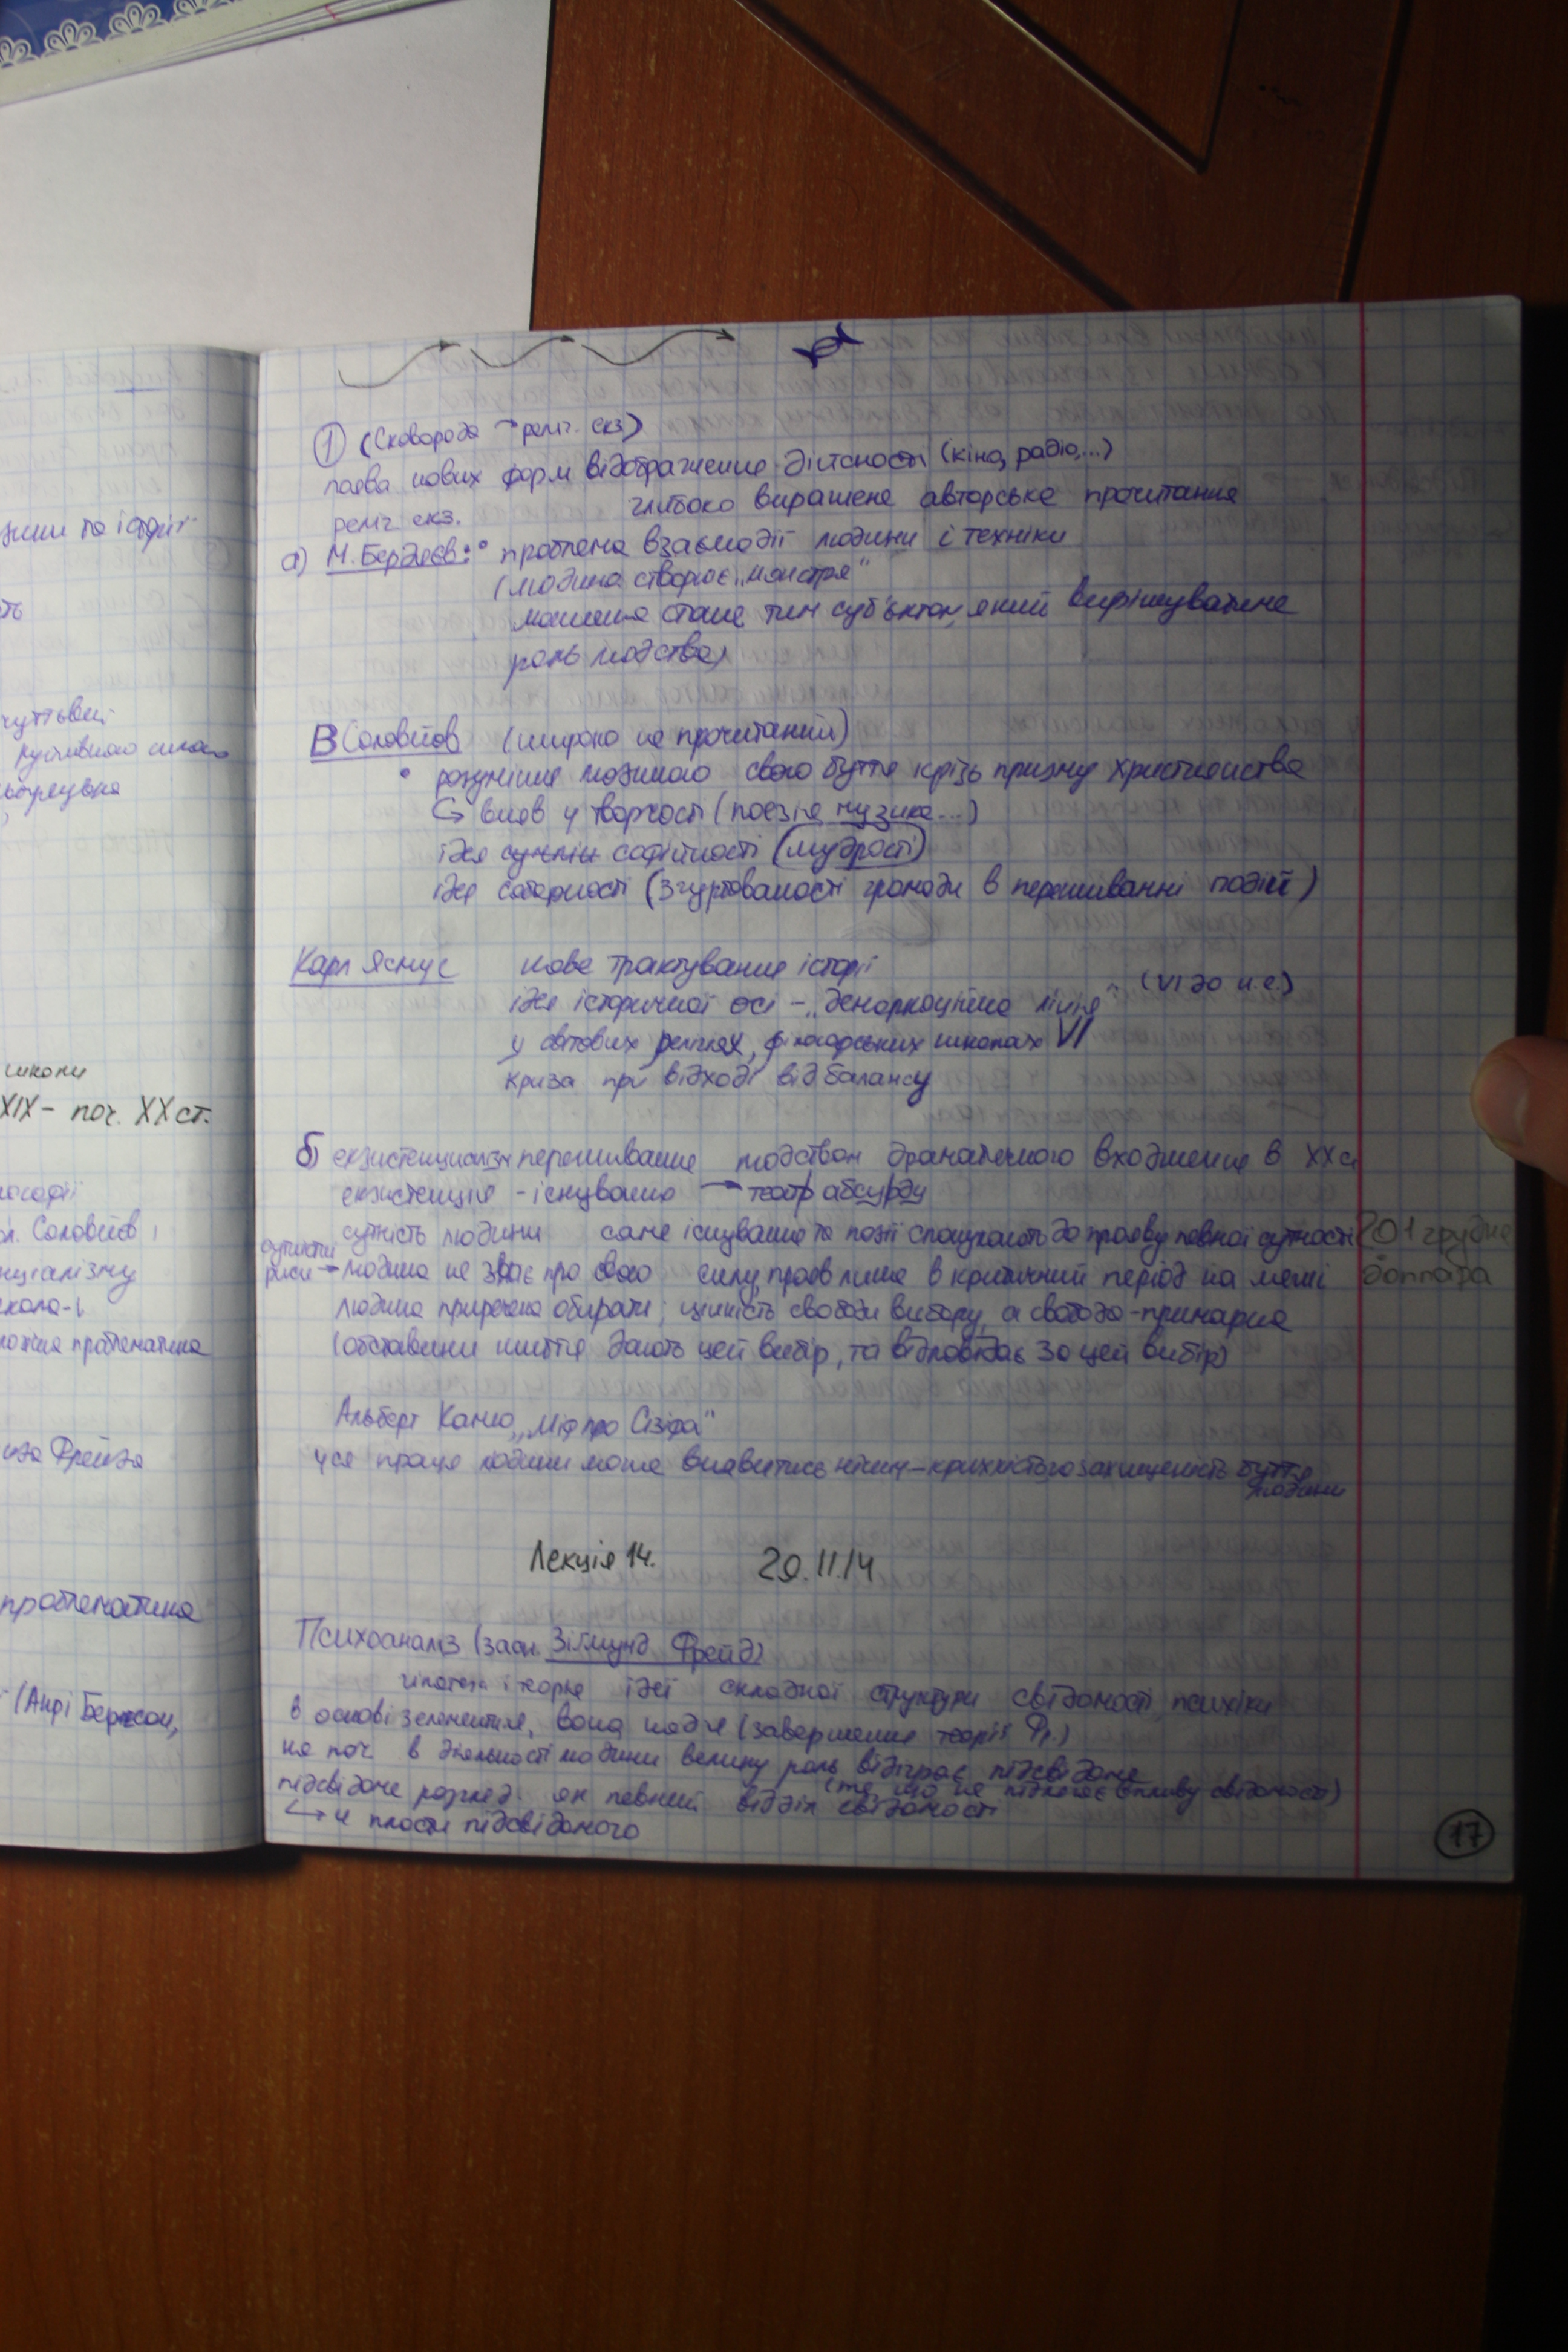 зини та історії
ть
чуттєвої
школи
XIX – поч. XX ст.
Соловйов і
проблематика
Фрейда
проблематика
(Анрі Бергсон,
① (Сковорода → реліг. екз)
поява нових форм відображення дійсності (кіно, радіо,...)
реліг. екз. глибоко виражене авторське прочитання
а) М. Бердяєв: • проблема взаємодії людини і техніки
(людина створює „монстра“
машина стане тим суб'єктом, який вирішуватиме
роль людства)
В Соловйов (широко не прочитаний)
• розуміння людиною свого буття крізь призму християнства
↪ вияв у творчості (поезія, музика...)
ідея софійності (мудрості)
ідея соборності (згуртованості громади в переживанні подій)
Карл Ясмус нове трактування історії
ідея історичної осі – „демаркаційна лінія“ (VI до н.е.)
у світових релігіях, філософських школах VI
криза при відході від балансу
б) екзистенціалізм переживання людством драматичного входження в XX ст
екзистенція – існування → театр абсурду
сутність людини саме існування та події спонукають до прояву певної сутності
сутністні риси → людина не знає про свою силу, прояв лише в критичний період на межі
людина приречена обирати; цінність свободи вибору, а свобода – примарна
(обставини життя дають цей вибір, та відповідає за цей вибір)
201 грудня
доллара
Альберт Камю „Міф про Сізіфа“
уся праця людини може виявитись нічим – крихкість захищеність буття
людини
Лекція 14. 29.11.14
Психоаналіз (засн. Зігмунд Фрейд)
гіпотеза і ідеї складної структури свідомості, психіки
в основі 3 елементи, вона (завершення теорії Фр.)
на поч. в діяльності людини велику роль відіграє підсвідоме
(те, що не підлягає впливу свідомості)
підсвідоме розгляд. як певний відділ свідомості
↪ підсвідомого
17